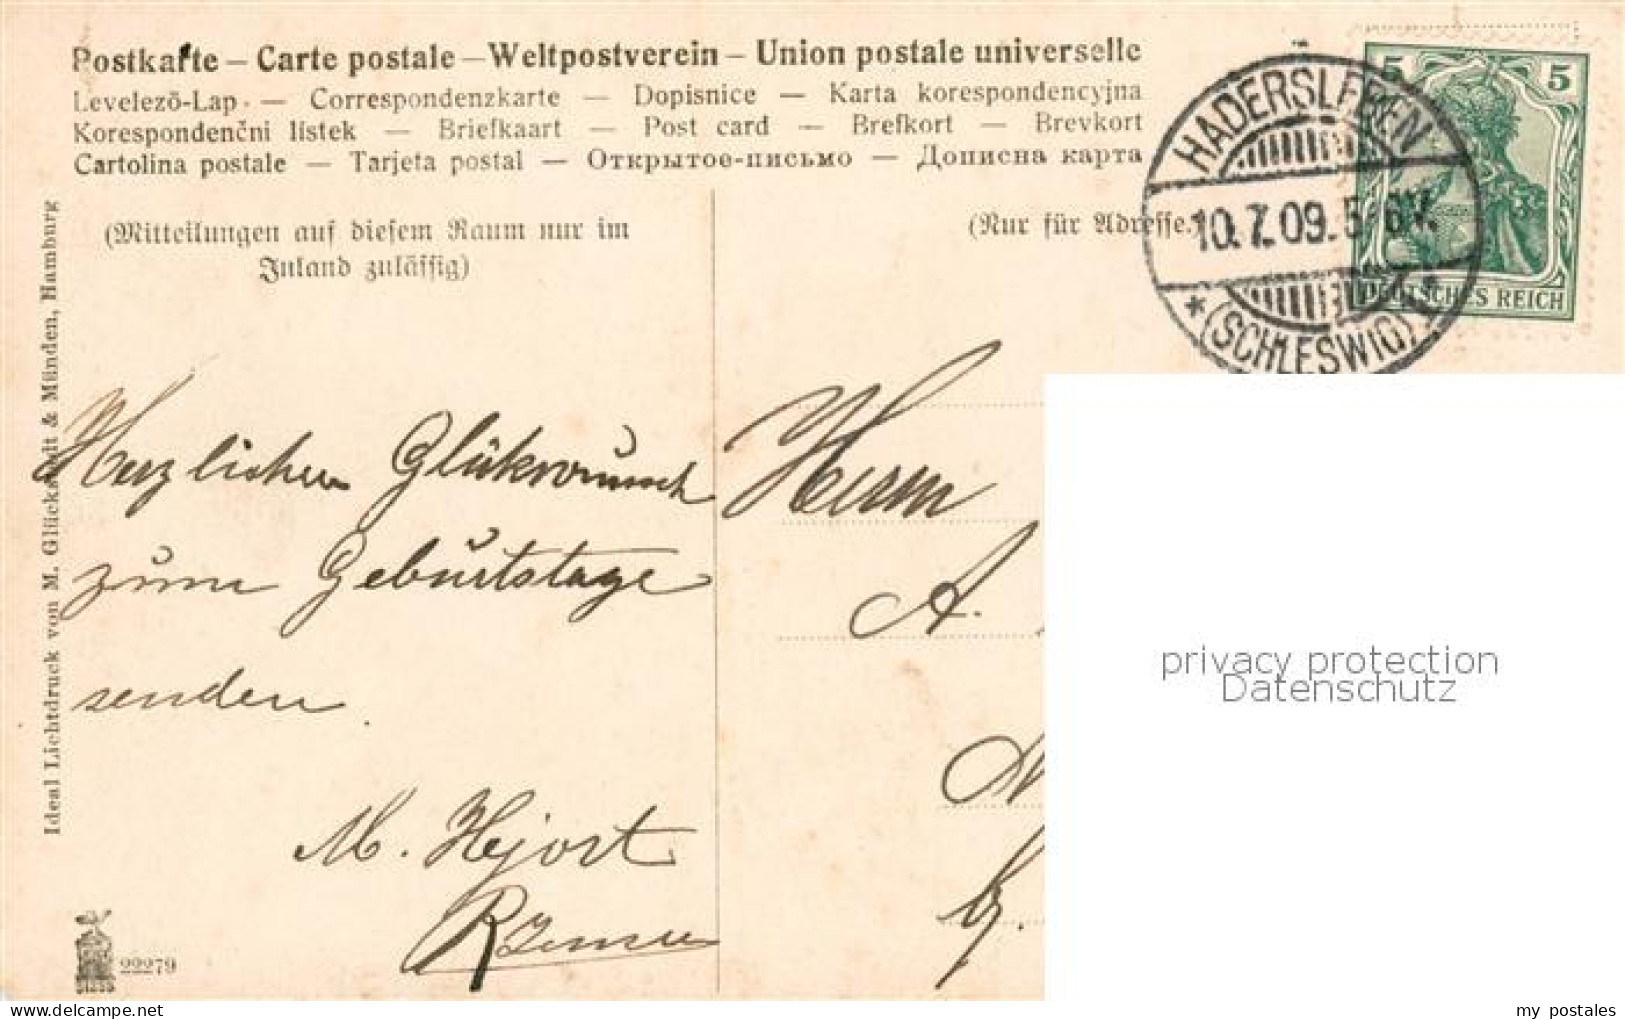 Postkarte – Carte postale – Weltpostverein – Union postale universelle
Levelező-Lap. — Correspondenzkarte — Dopisnice — Karta korespondencyjna
Korespondenčni listek — Briefkaart — Post card — Brefkort — Brevkort
Cartolina postale — Tarjeta postal — Открытое-письмо — Дописна карта
(Mitteilungen auf diesem Raum nur im
Inland zulässig)
(Nur für Adresse.)
HADERSLEBEN
10.7.09. 5-6V.
* (SCHLESWIG)
5 5
DEUTSCHES REICH
Ideal Lichtdruck von M. Glückstadt & Münden, Hamburg
Herzlichen Glückwunsch
zum Geburtstage
senden.
M. Hjort
Herrn
A.
22279
privacy protection
Datenschutz
my postales